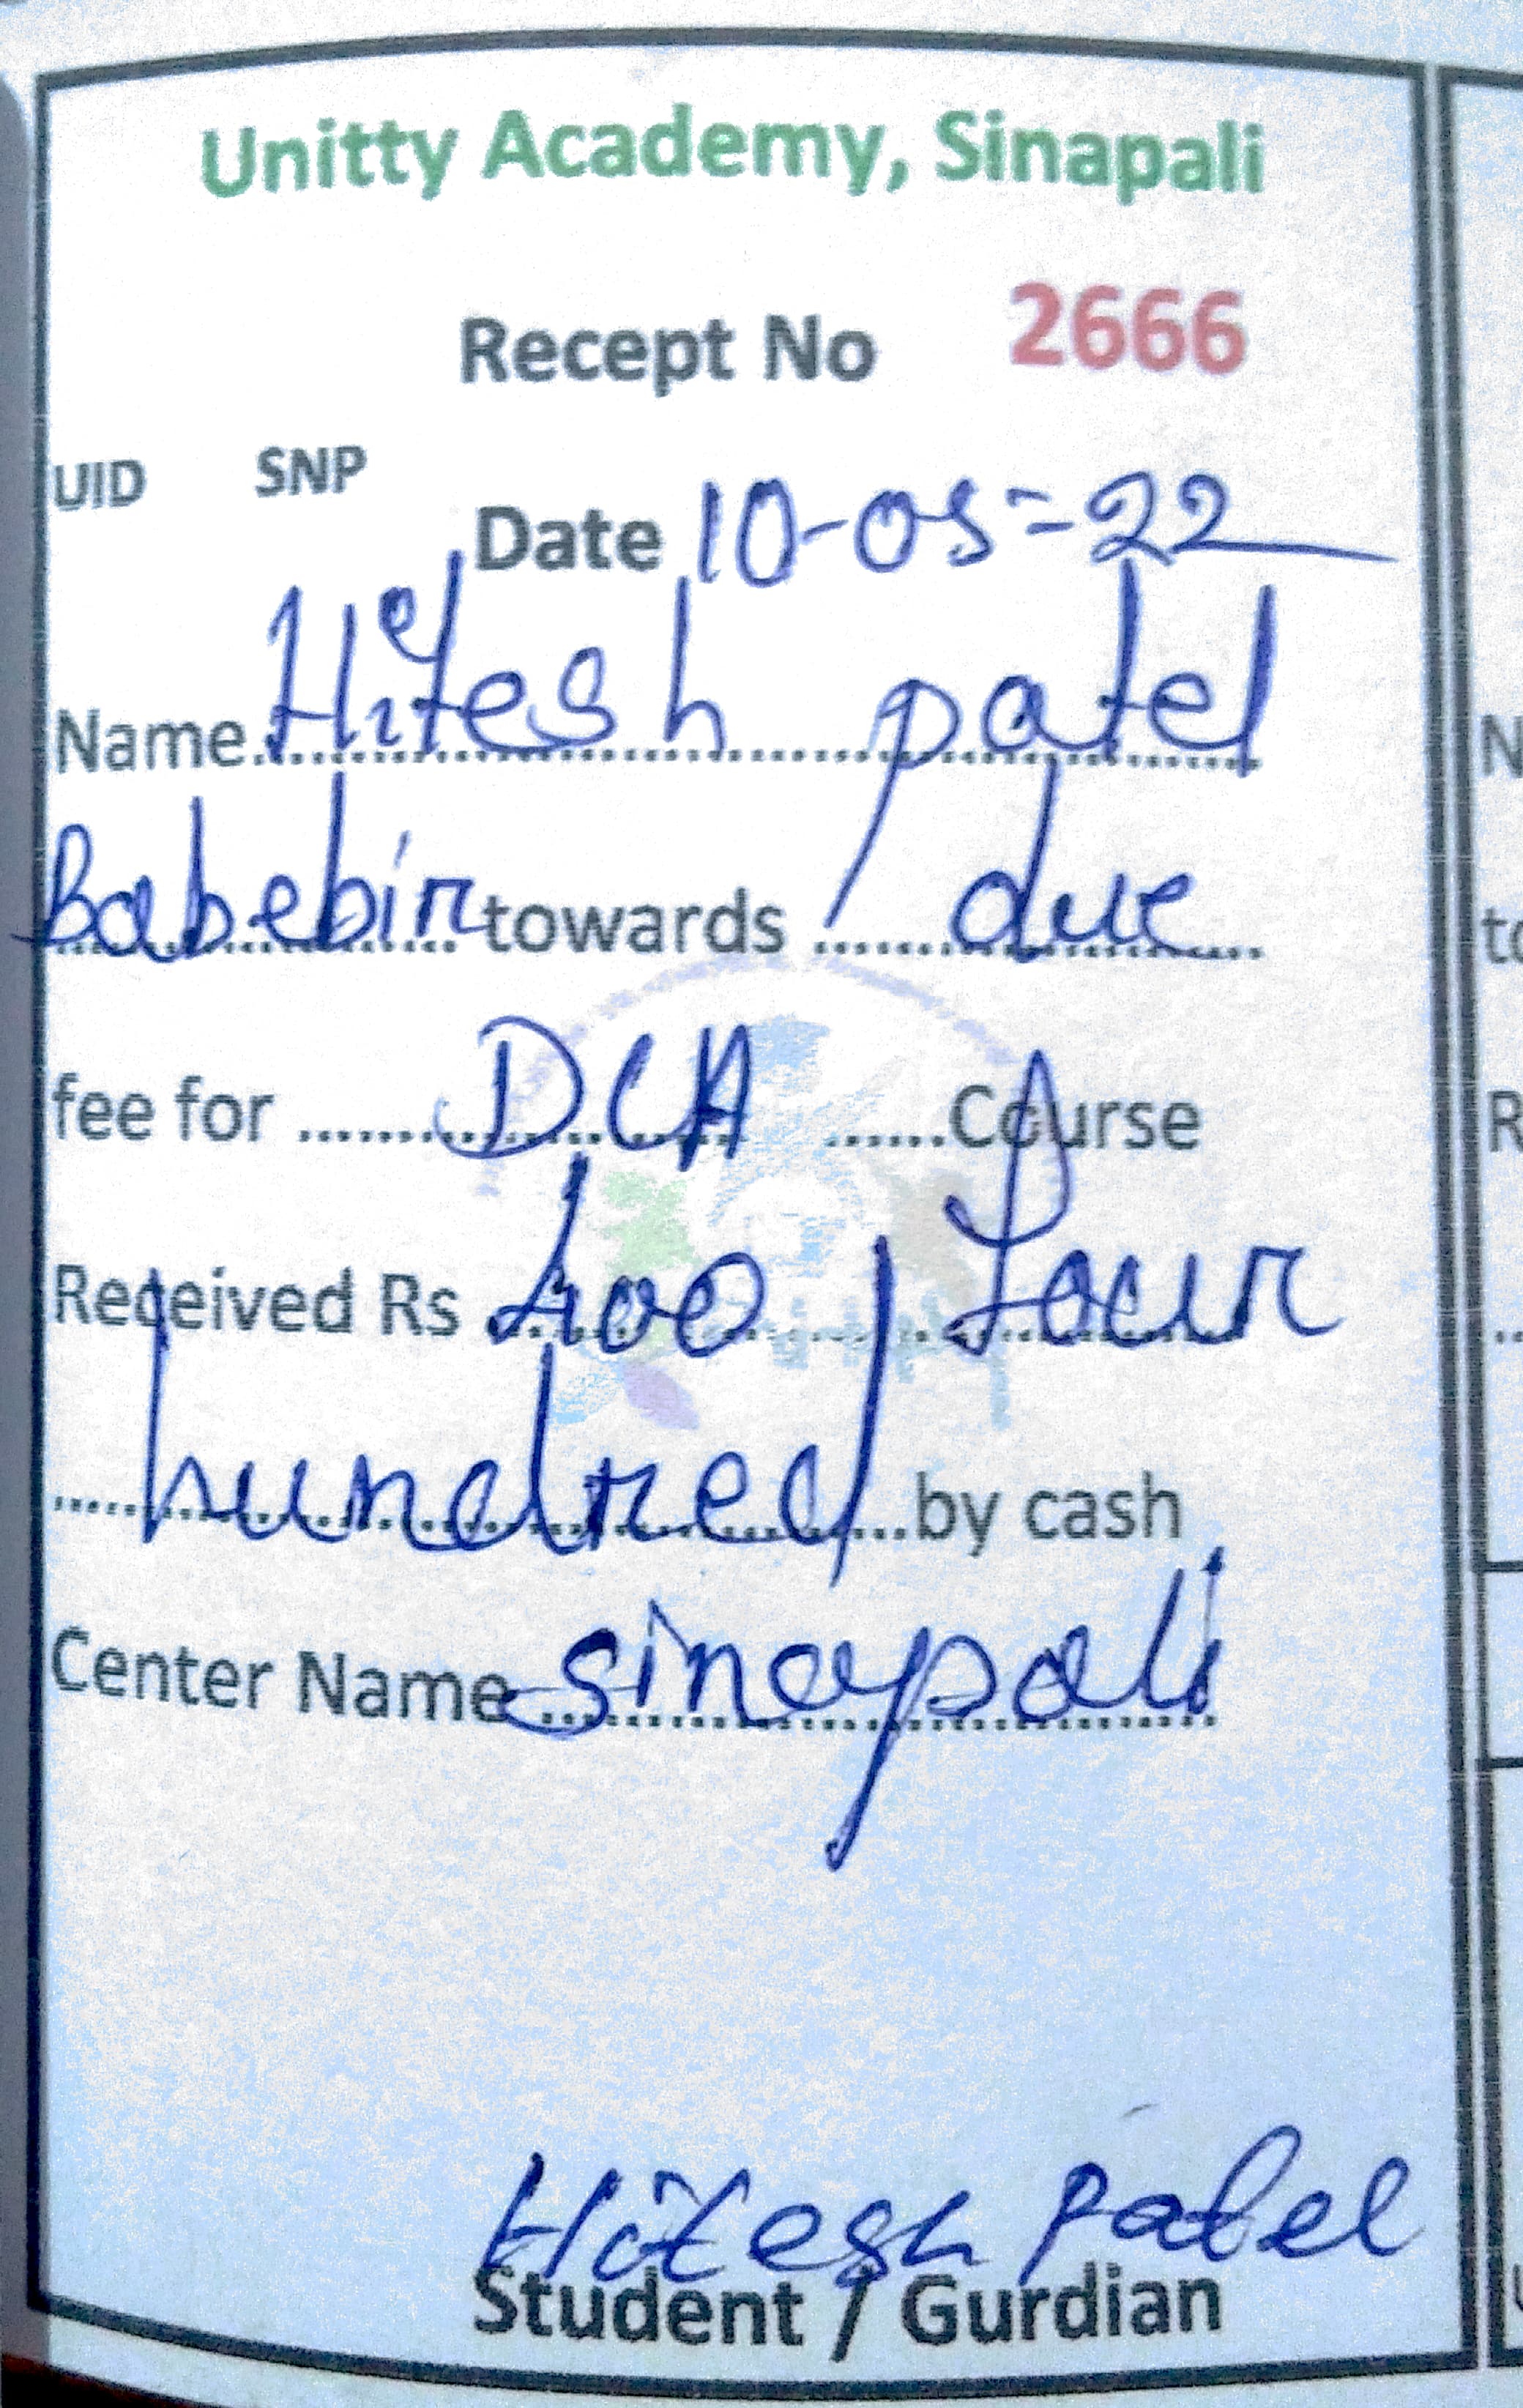 Unitty Academy, Sinapali
Recept No 2666
UID SNP
Date 10-05-22
Name Hitesh patel
Babebir towards due
fee for DCA Course
Received Rs 400 / Four
hundred by cash
Center Name sinapali
Hitesh Patel
Student / Gurdian